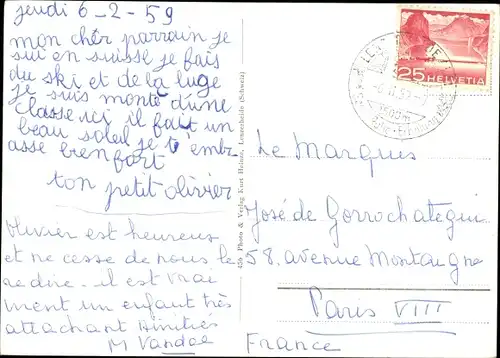 jeudi 6-2-59
mon cher parrain je
sui en suisse je fais
du ski et de la luge
je suis monté d'une
classe ici il fait un
beau soleil je t'emb-
asse bien fort
ton petit olivier
Olivier est heureux
et ne cesse de nous le
redire. il est vrai
ment un enfant très
attachant Amitiés
M Vandae
456 Photo & Verlag Kurt Heiner, Lenzerheide (Schweiz)
25 HELVETIA
Le Marquis
José de Gorrochategui
58, avenue Montaigne
Paris VIII
France